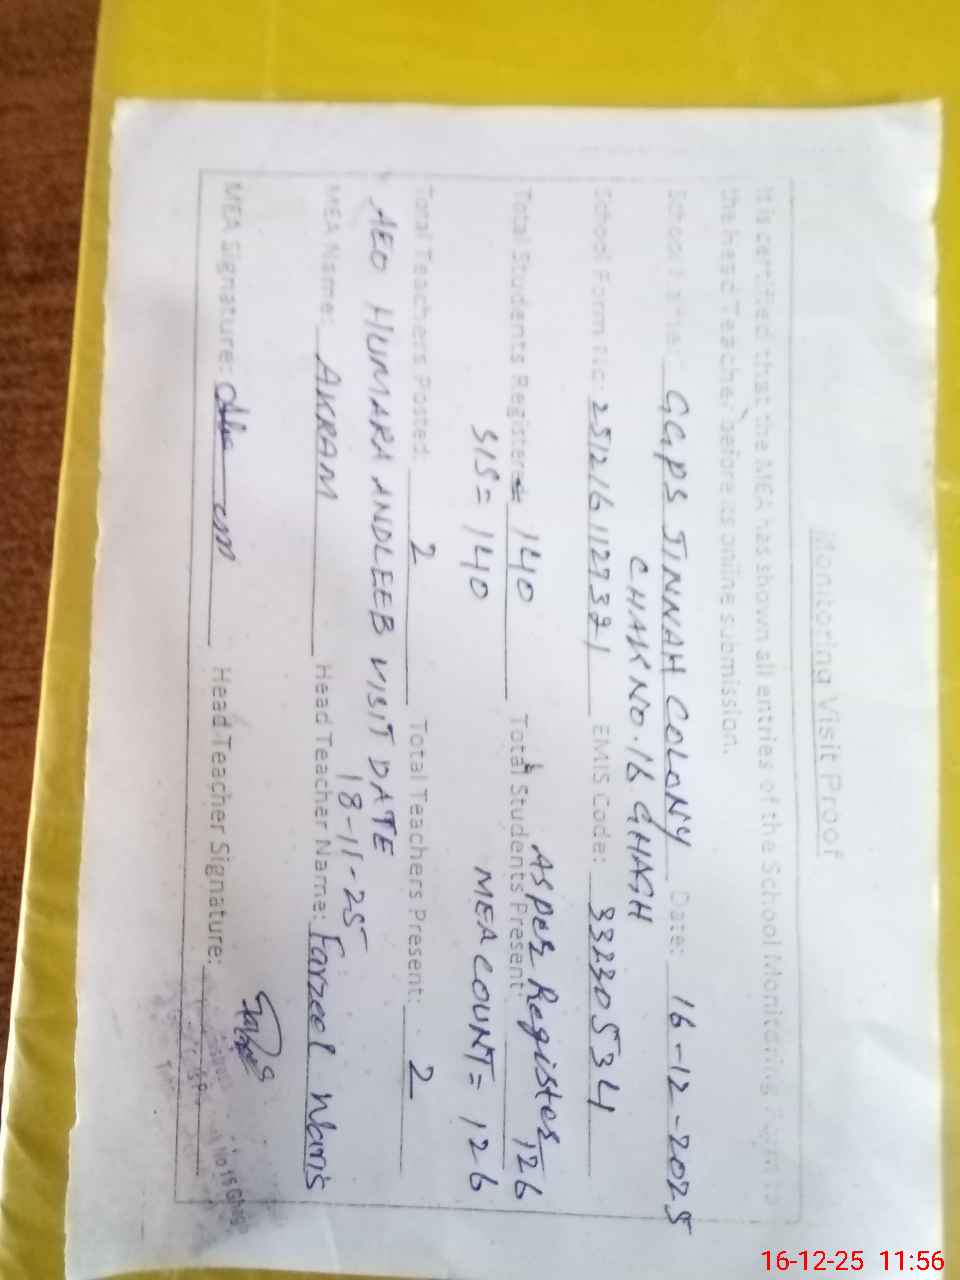 Monitoring Visit Proof
It is certified that the MEA has shown all entries of the School Monitoring Form to
the head Teacher before its online submission.
School Name: GGPS JINNAH COLONY Date: 16-12-2025
CHAK NO. 16 GHAGH
School Form No: 251216112731 EMIS Code: 33230534
As per Register
Total Students Registered 140 Total Students Present: 126
SIS = 140 MEA COUNT = 126
Total Teachers Posted: 2 Total Teachers Present: 2
AEO HUMARA ANDLEEB VISIT DATE
18-11-25
MEA Name: AKRAM Head Teacher Name: Farzeel Waris
MEA Signature: Head Teacher Signature:
16-12-25 11:56